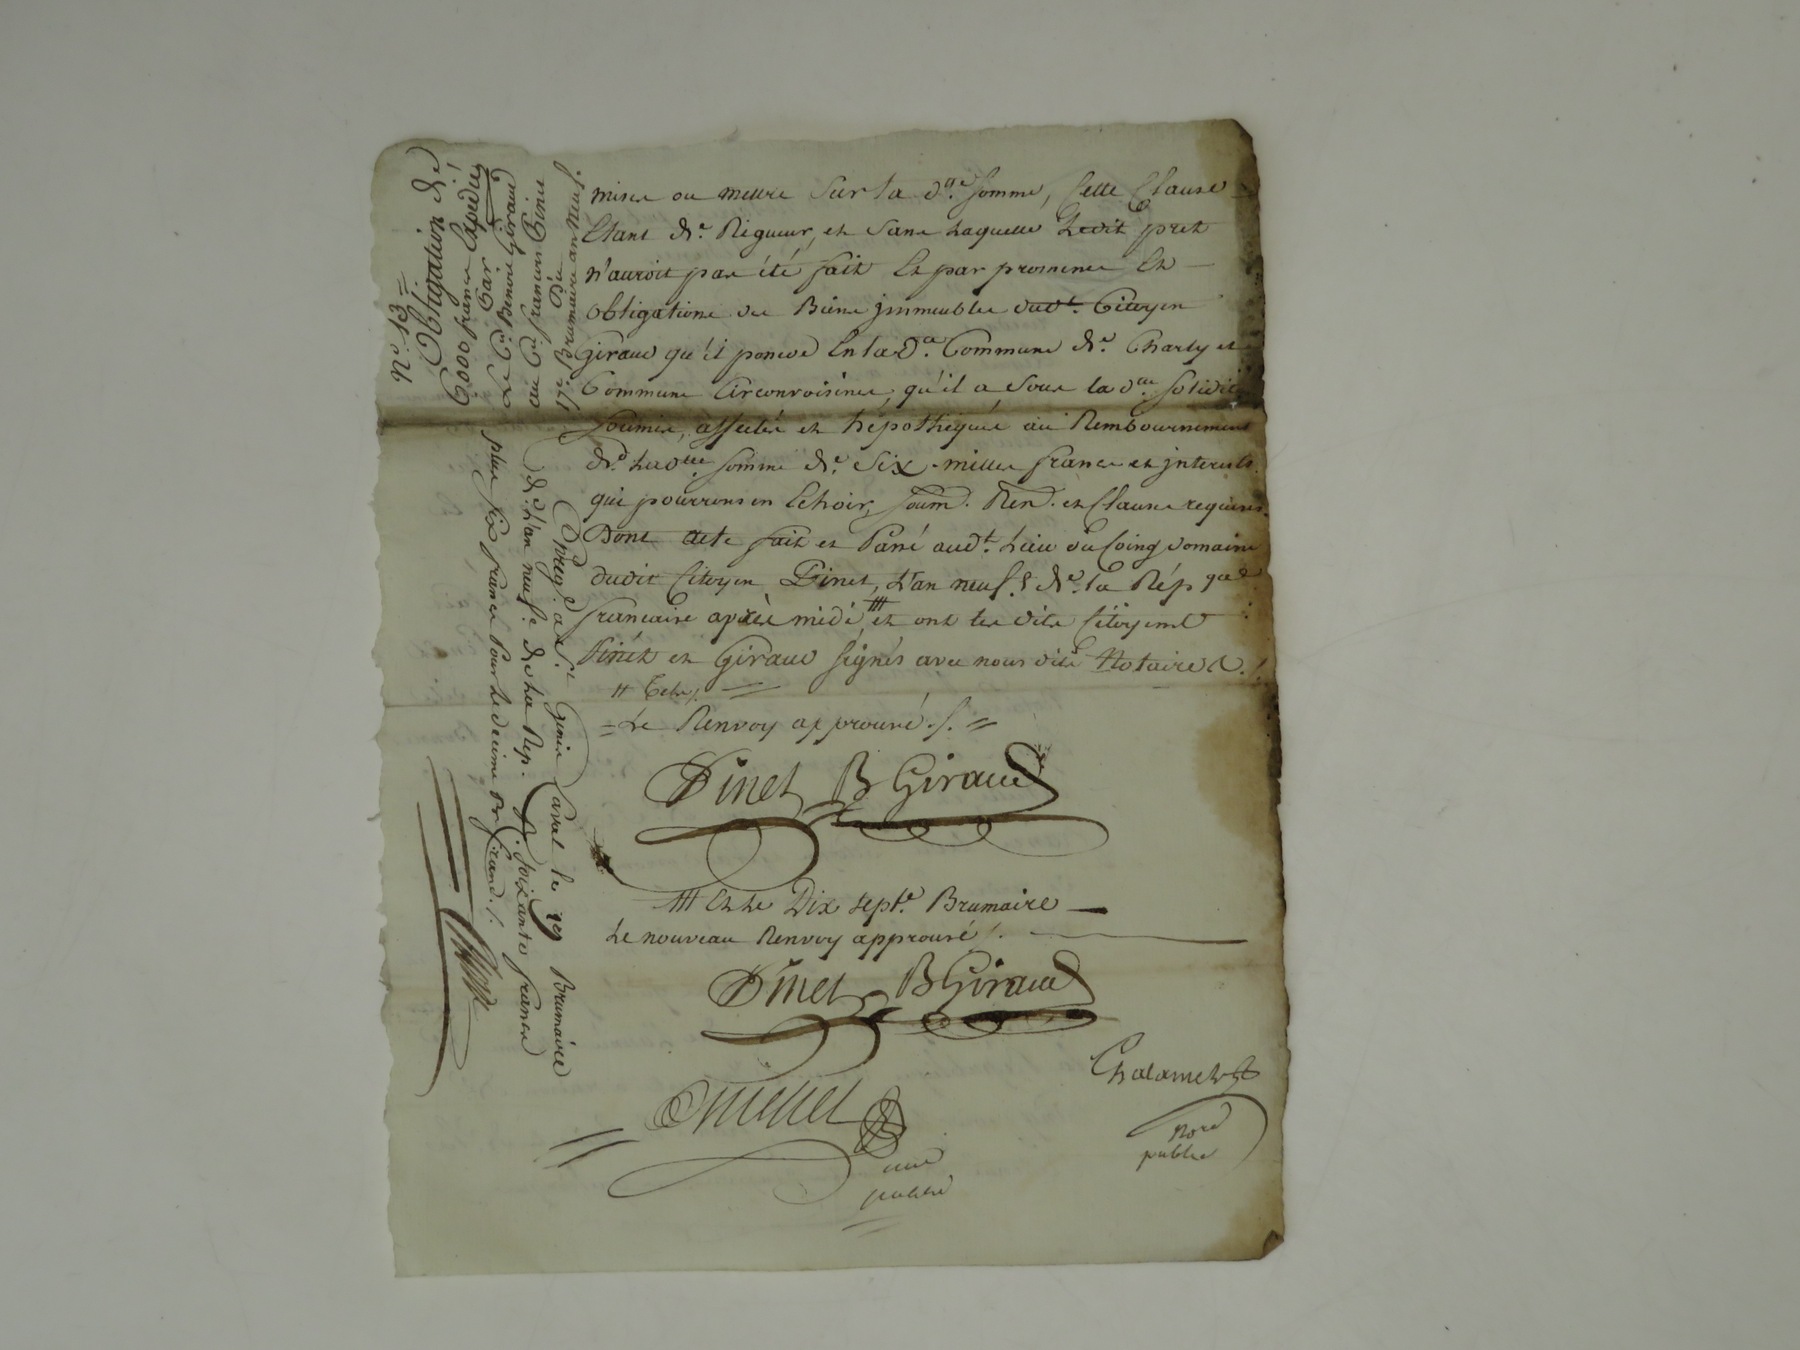 mise ou mettre sur la d.te somme, Cette Clause
Etant de Rigueur, et sans Laquelle Ledit pret
n'auroit pas été fait Et par promesse Et
obligations des Biens jmmeubles dud.t Citoyen
Giraud qu'il possede En la d.e Commune de Charly et
Commune Circonvoisines, qu'il a sous la d.te
soumis, affectés et hépothéqués au Remboursement
de Lad.tte somme de Six mille francs et jnterets
qui pourront en Echoir, soum. Ren. et Clause requises.
Dont acte fait et Passé aud.t Lieu du Coing domaine
dudit Citoyen Pinet, L'an neuf de la Rép.que
francaise après midi # et ont les dits Citoyens
Pinet et Giraud signés avec nous dits Notaires
= Le Renvoy approuvé ./. =
Pinet B Giraud
# Et Le Dix sept.e Brumaire
Le nouveau Renvoy approuvé /.
Pinet B Giraud
Chalamel
no.re
public
public
N.o 13 =
Obligation de
6000 francs Expédié
Par
Benoit Giraud
au C. francois Pinet
Du
17.e Brumaire an Neuf.
Genis Laval le 19 Brumaire
de L'an neuf de La Rep. R. soixante francs
plus six francs Pour Le decime Par franc ./.